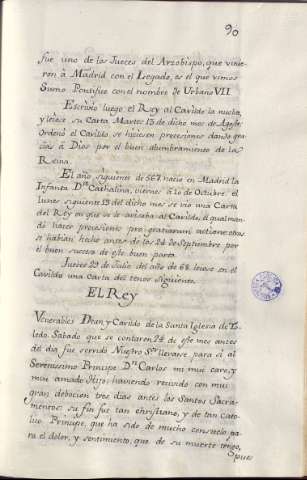 90
fue uno de los Jueces del Arzobispo, que vinie-
ron à Madrid con el Legado, es el que vimos
Sumo Pontifice con el nombre de Urbano VII.
Escrivio luego el Rey al Cavildo la nueba,
y leiose su Carta Martes 13 de dicho mes de Agosto.
Ordenó el Cavildo se hiciesen procesiones dando gra-
cias â Dios por el buen alumbramiento de la
Reina.
El año siguiente de 567 nacio en Madrid la
Infanta Dª Cathalina, viernes à 10 de Octubre. el
lunes siguiente 13 del dicho mes se vio una Carta
del Rey en que se lo avisaba al Cavildo, el qual man-
dó hacer procesion pro gratiarum actione
se habian hecho antes de los 24 de Septiembre por
el buen suceso de este buen parto.
Jueves 29 de Julio del año de 68 leiose en el
Cavildo una Carta del tenor siguiente.
El Rey
Venerables Dean y Cavildo de la Santa Iglesia de To-
ledo. Sabado que se contaron 24 de este mes antes
del dia, fue servido Nuestro Sr. llevarse para si al
Serenissimo Principe Dn Carlos mi mui caro, y
mui amado Hijo; haviendo recivido con mui
gran debocion tres dias antes los Santos Sacra-
mentos. su fin fue tan christiano, y de tan Cato-
lico Principe, que ha sido de mucho consuelo, pa-
ra el dolor, y sentimiento, que de su muerte tengo,
pues